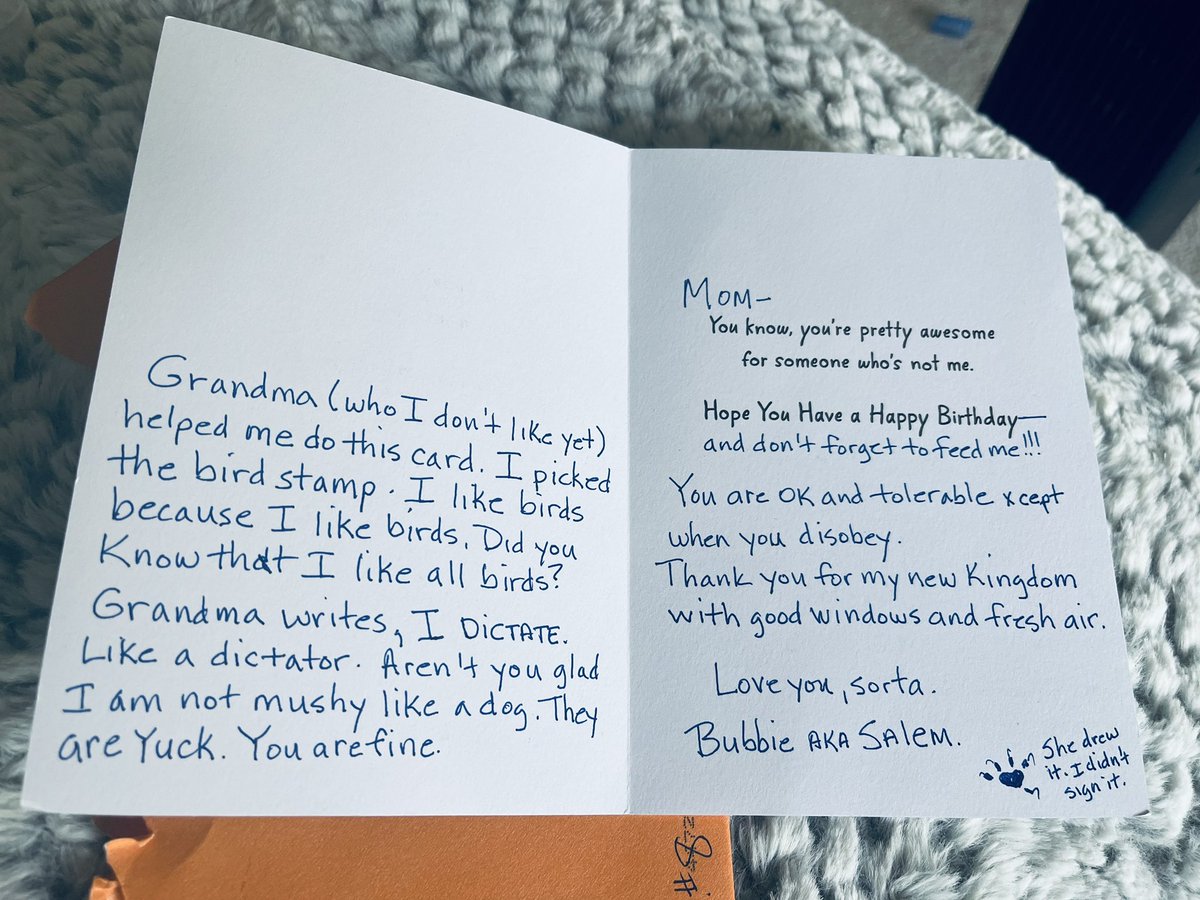 Grandma (who I don't like yet)
helped me do this card. I picked
the bird stamp. I like birds
because I like birds. Did you
Know that I like all birds?
Grandma writes, I DICTATE.
Like a dictator. Aren't you glad
I am not mushy like a dog. They
are Yuck. You are fine.
Mom-
You know, you're pretty awesome
for someone who's not me.
Hope You Have a Happy Birthday—
and don't forget to feed me!!!
You are OK and tolerable xcept
when you disobey.
Thank you for my new Kingdom
with good windows and fresh air.
Love you, sorta.
Bubbie AKA Salem.
She drew
it. I didn't
sign it.